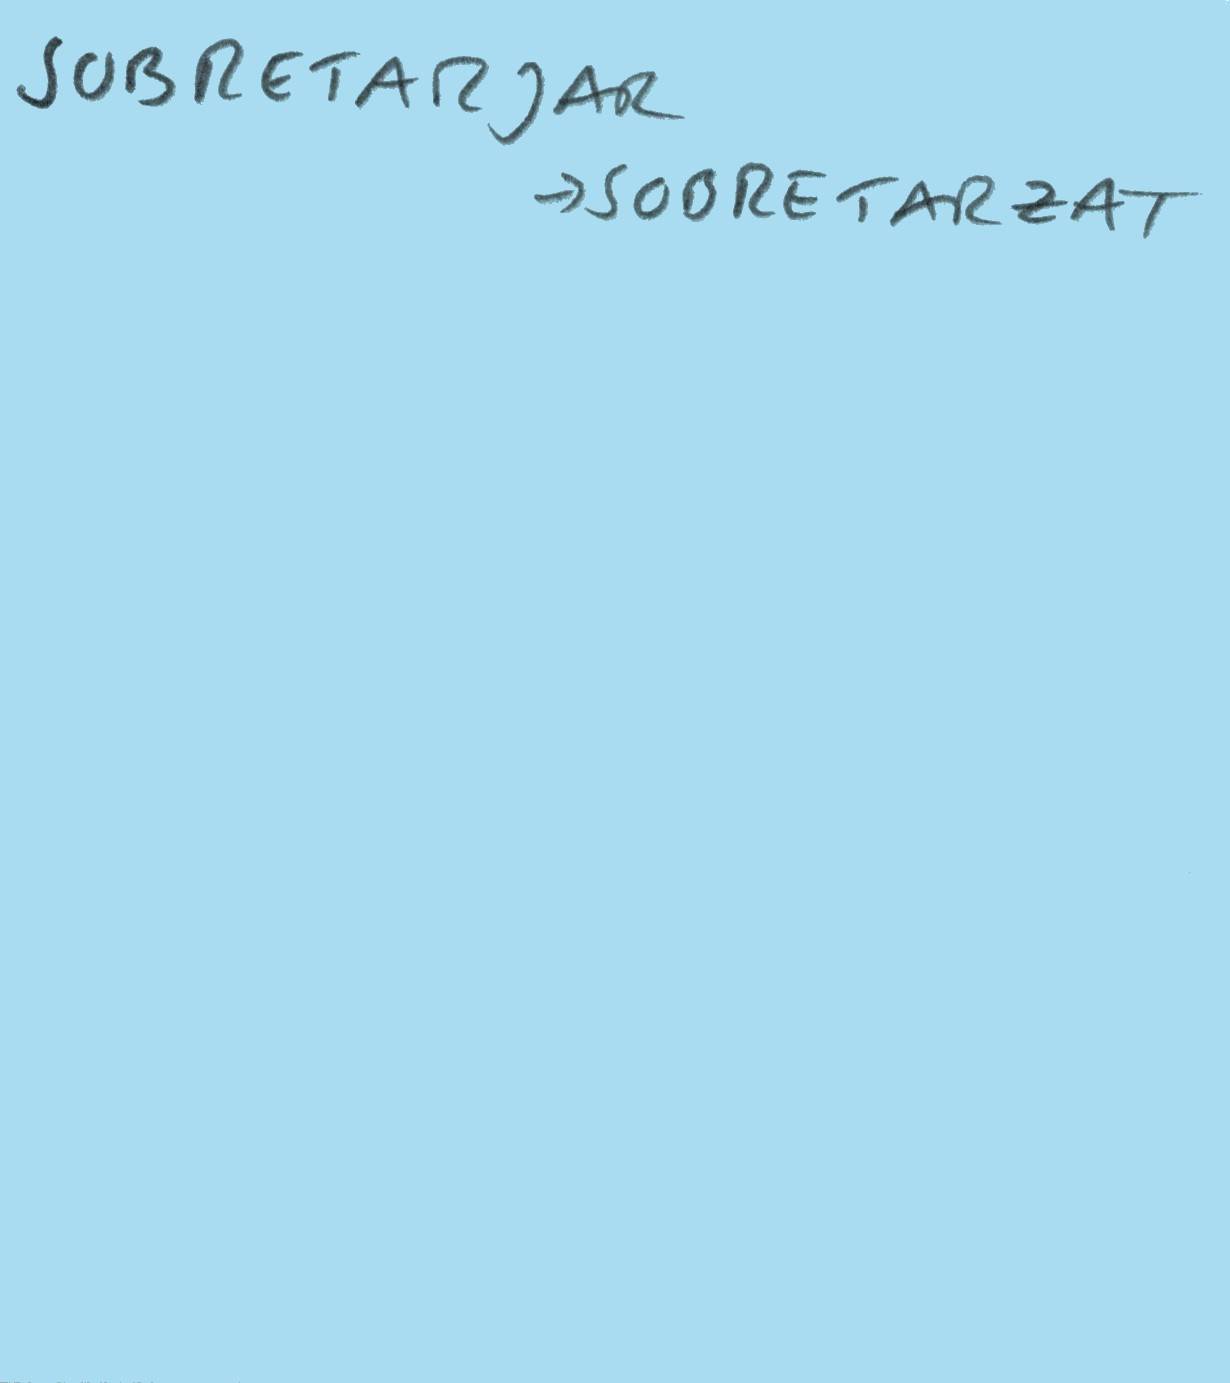 SOBRETARJAR
→SOBRETARZAT